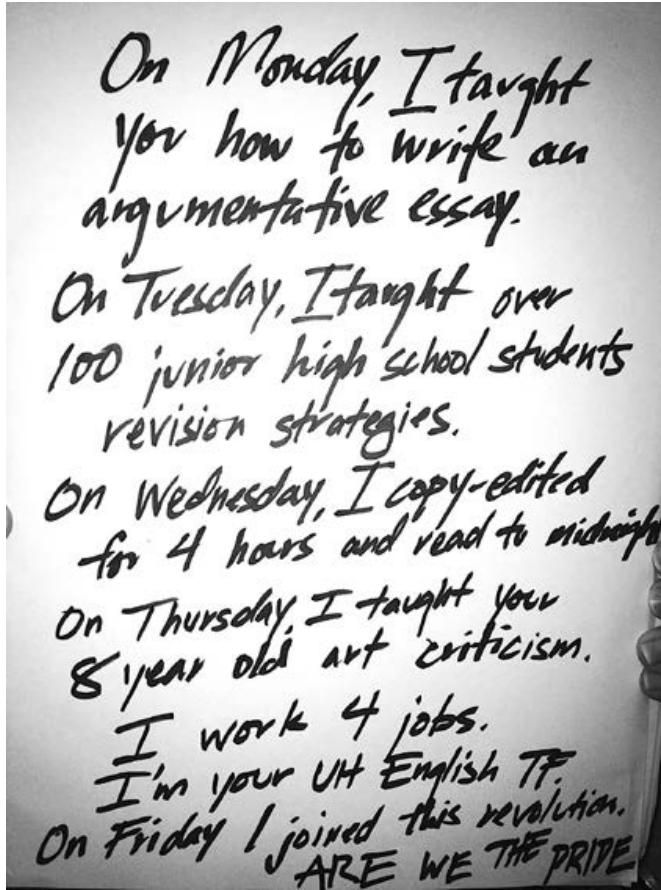 On Monday, I taught
you how to write an
argumentative essay.
On Tuesday, I taught over
100 junior high school students
revision strategies.
On Wednesday, I copy-edited
for 4 hours and read to midnight
On Thursday, I taught your
8 year old art criticism.
I work 4 jobs.
I'm your UH English TF.
On Friday I joined this revolution.
ARE WE THE PRIDE